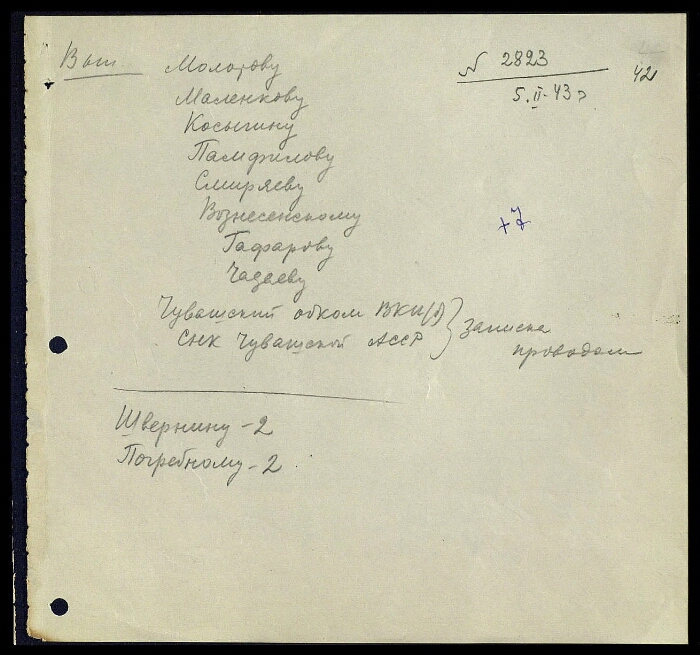 Вып. Молотову № 2823
Маленкову 5.II-43 г 42
Косыгину
Памфилову
Смиряеву
Вознесенскому +7
Гафарову
Чадаеву
Чувашский обком ВКП(б) } Записка
СНК Чувашской АССР проводом
Швернику - 2
Погребному - 2